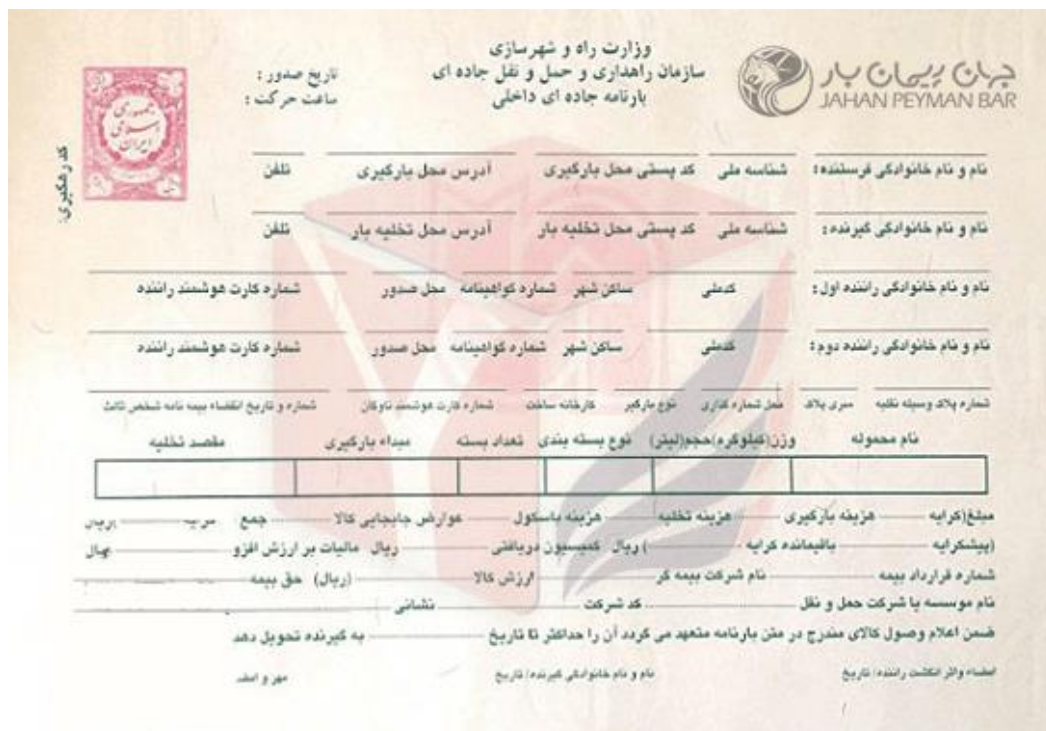 وزارت راه و شهرسازی
سازمان راهداری و حمل و نقل جاده ای
بارنامه جاده ای داخلی
جهان پیمان بار
JAHAN PEYMAN BAR
تاریخ صدور :
ساعت حرکت :
جمهوری اسلامی ایران
کد رهگیری:
نام و نام خانوادگی فرستنده: شناسه ملی کد پستی محل بارگیری آدرس محل بارگیری تلفن
نام و نام خانوادگی گیرنده: شناسه ملی کد پستی محل تخلیه بار آدرس محل تخلیه بار تلفن
نام و نام خانوادگی راننده اول: کدملی ساکن شهر شماره گواهینامه محل صدور شماره کارت هوشمند راننده
نام و نام خانوادگی راننده دوم: کدملی ساکن شهر شماره گواهینامه محل صدور شماره کارت هوشمند راننده
شماره پلاک وسیله نقلیه سری پلاک محل شماره گذاری نوع بارگیر کارخانه ساخت شماره کارت هوشمند ناوگان شماره و تاریخ انقضاء بیمه نامه شخص ثالث
نام محموله وزن(کیلوگرم)حجم(لیتر) نوع بسته بندی تعداد بسته مبداء بارگیری مقصد تخلیه
مبلغ(کرایه هزینه بارگیری هزینه تخلیه هزینه باسکول عوارض جابجایی کالا جمع
(پیشکرایه باقیمانده کرایه ) ریال کمیسیون دریافتی ریال مالیات بر ارزش افزو
شماره قرارداد بیمه نام شرکت بیمه گر ارزش کالا (ریال) حق بیمه
نام موسسه یا شرکت حمل و نقل کد شرکت نشانی
ضمن اعلام وصول کالای مندرج در متن بارنامه متعهد می گردد آن را حداکثر تا تاریخ به گیرنده تحویل دهد
امضاء واثر انگشت راننده/ تاریخ نام و نام خانوادگی گیرنده/ تاریخ مهر و امضاء